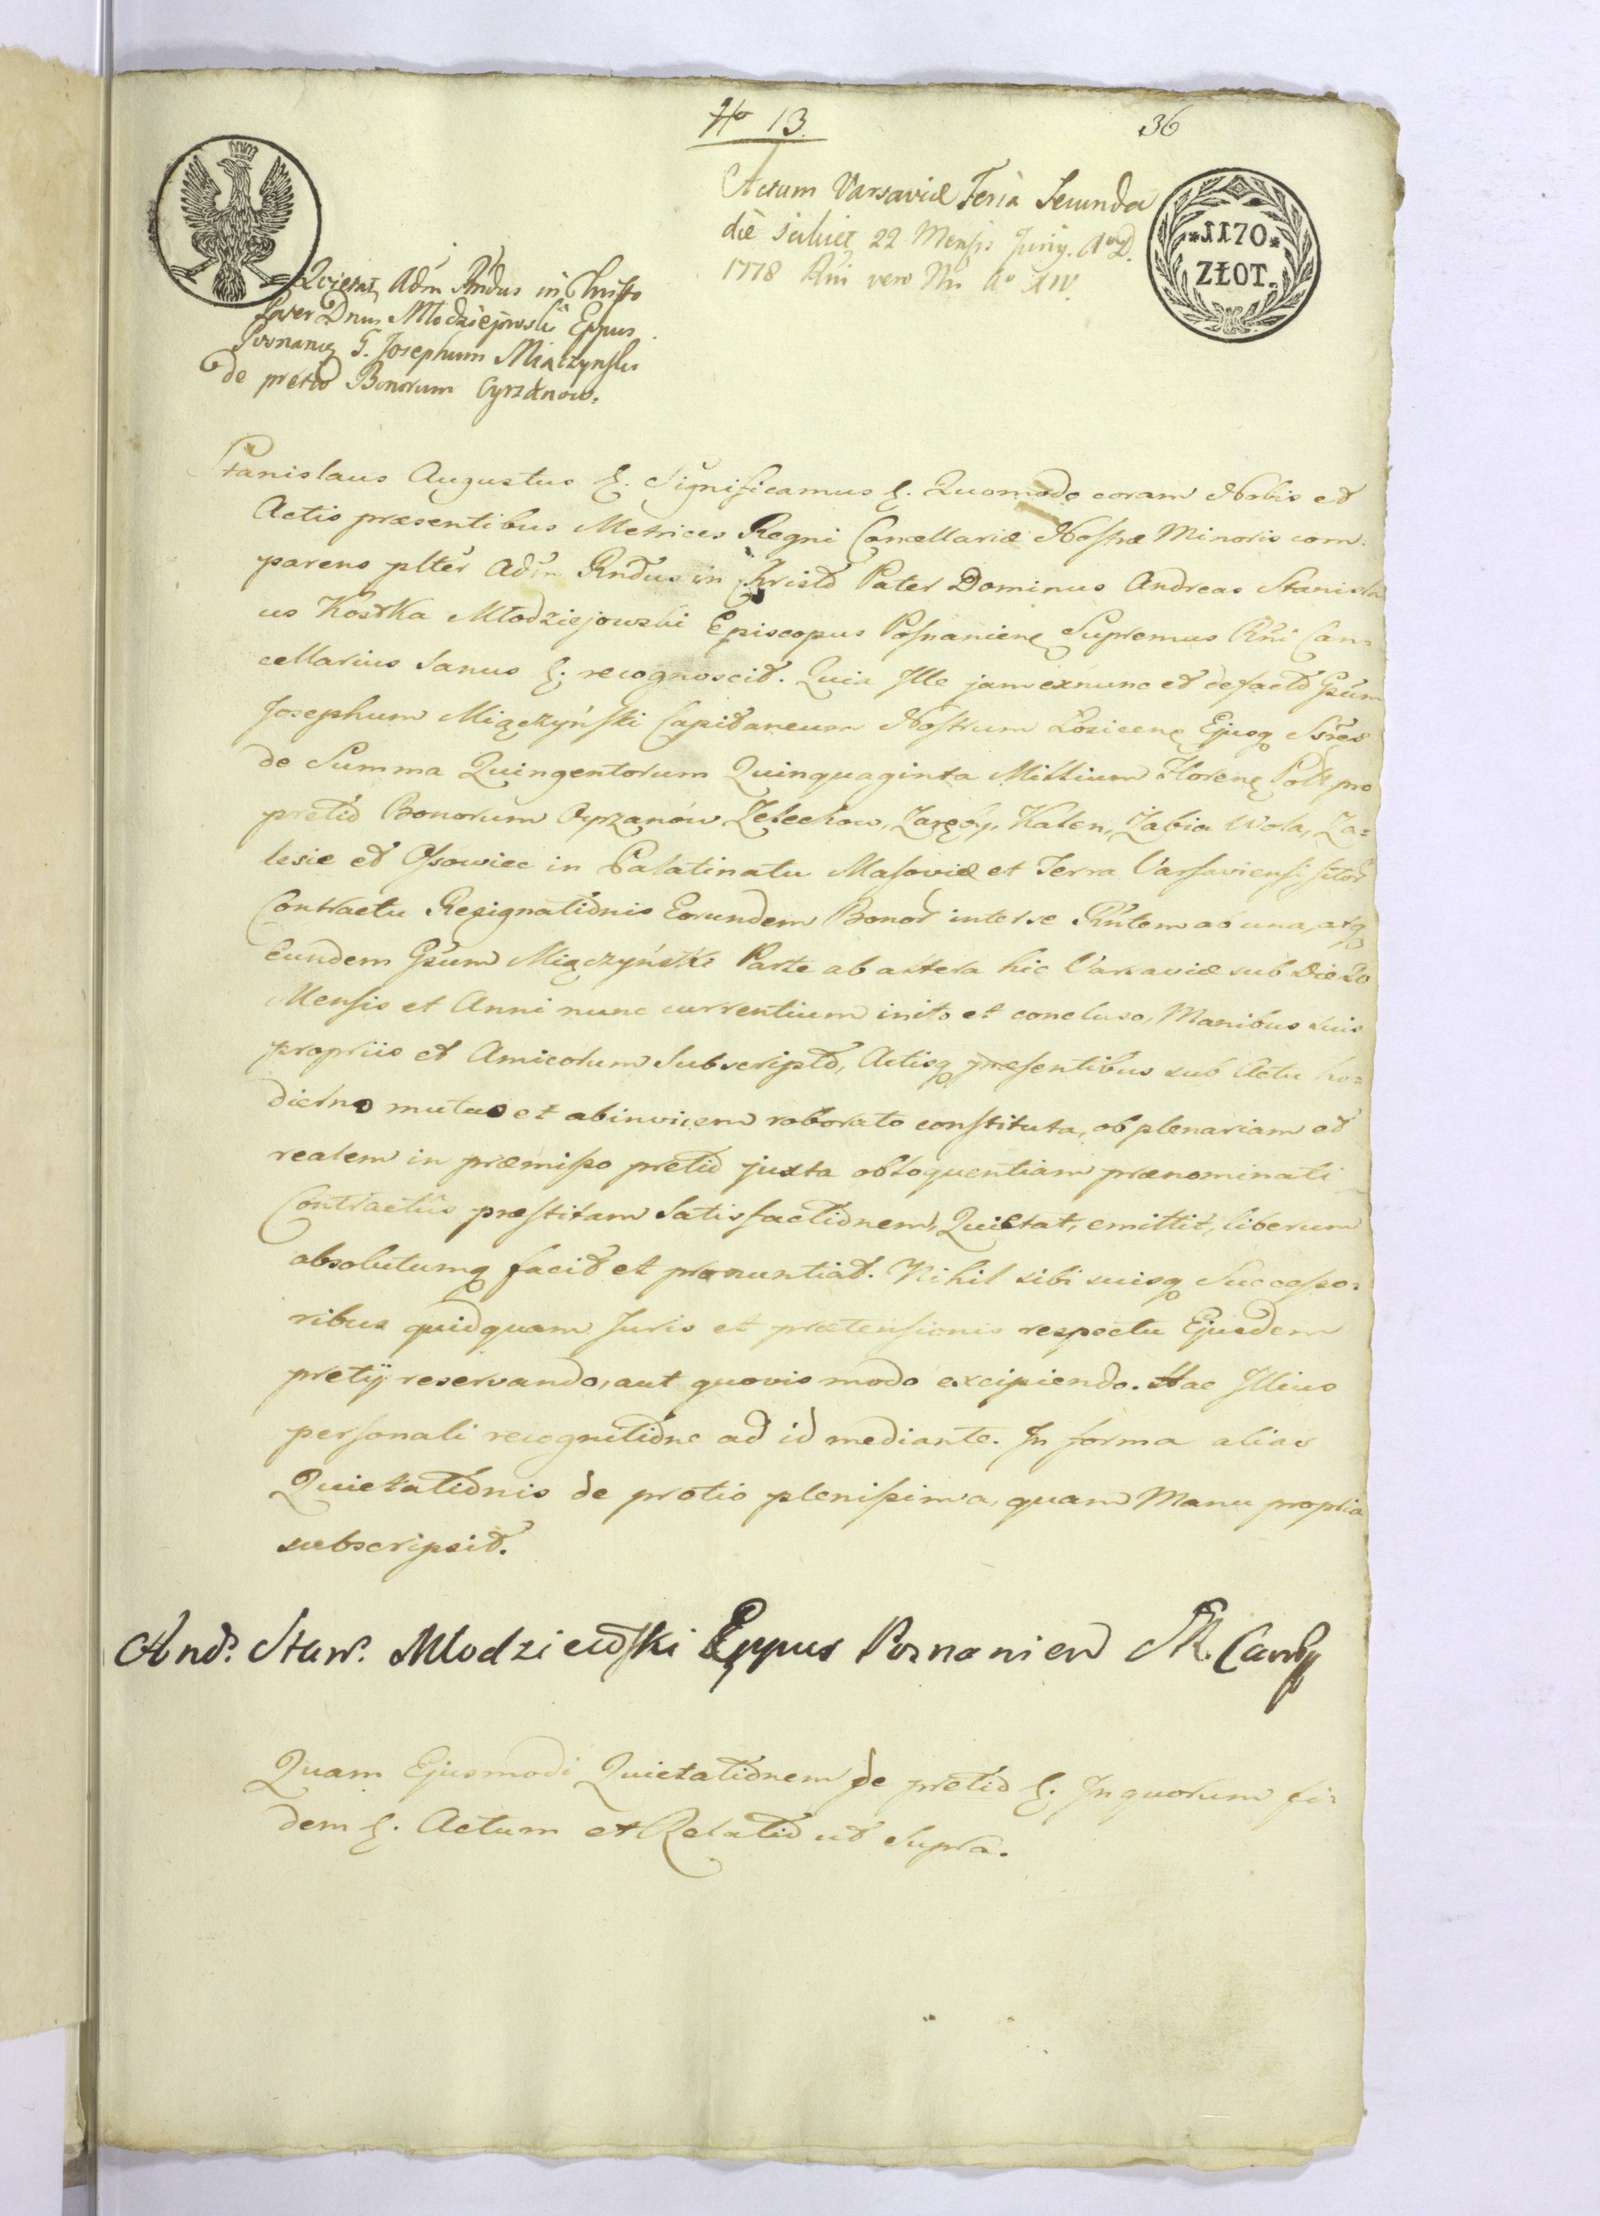 No 13.
36
Actum Varsaviæ Feria Secunda
die scilicet 22 Mensis Junÿ. Ao D.
1778 Rñi vero Nri Ao XIV.
*1170*
ZŁOT.
Quietat Adm Rñdus in Christo
Pater Dnus Młodziejowski Eppus
Posnanien G. Josephum Miączynski
de pretio Bonorum Oyrzanow.
Stanislaus Augustus &. Significamus &. Quomodo coram Nobis et
Actis præsentibus Metrices Regni Cancellariæ Nostræ Minoris com-
parens plter Adm Rndus in Christo Pater Dominus Andreas Stanisla
us Kostka Młodziejowski Episcopus Posnanien Supremus Rñi Can-
cellarius Sanus &. recognoscit. Quia Ille jam exnunc et de facto Gsum
Josephum Miączyński Capitaneum Nostrum Łosicen Ejusq Ssres
de Summa Quingentorum Quinquaginta Millium Floren Poll pro
pretio Bonorum Oyrzanów Zelechow, Zaręby, Kalen, Żabia Wola, Za-
lesie et Osowiec in Palatinatu Masoviæ et Terra Varsaviensi sitor
Contractu Resignationis Eorundem Bonor inter se Rñtem ab una, atq
Eundem Gsum Miączyński Parte ab altera hic Varsaviæ sub Die 20
Mensis et Anni nunc currentium inito et concluso, Manibus suis
propriis et Amicorum Subscripto, Actisq præsentibus sub Actu ho-
dierno mutuo et abinvicem roborato constituta, ob plenariam et
realem in præmisso pretio juxta obloquentiam prænominati
Contractûs præstitam Satisfactionem, Quietat, emittit, liberum
absolutumq facit et pronuntiat. Nihil sibi suisq Successo-
ribus quidquam Juris et prætensionis respectu Ejusdem
pretÿ reservando, aut quovis modo excipiendo. Hac Illius
personali recognitione ad id mediante. In forma alias
Quietationis de pretio plenissima, quam Manu propria
subscripsit.
And. Stan. Młodzieiowski Eppus Posnanien SR. Canc
Quam Ejusmodi Quietationem de pretio &. In quorum fi-
dem &. Actum et Relatio ut Supra.